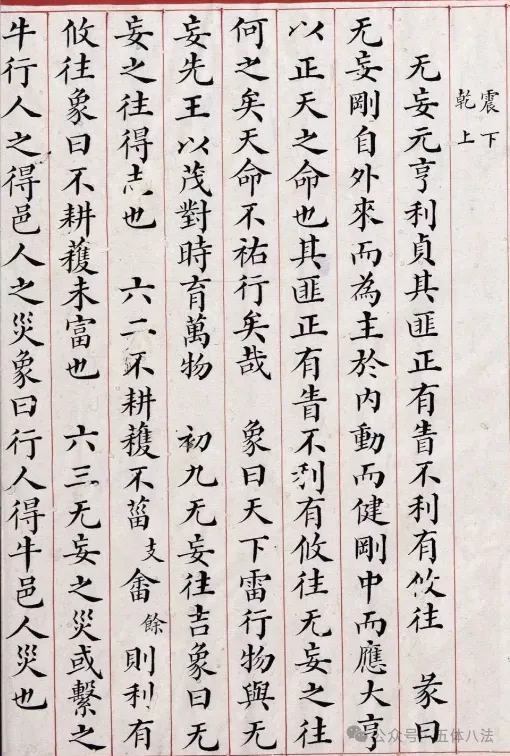 震下
乾上
无妄元亨利貞其匪正有眚不利有攸往 彖曰
无妄剛自外來而為主於內動而健剛中而應大亨
以正天之命也其匪正有眚不利有攸往无妄之往
何之矣天命不祐行矣哉 象曰天下雷行物與无
妄先王以茂對時育萬物 初九无妄往吉象曰无
妄之往得志也 六二不耕穫不菑支畬餘則利有
攸往象曰不耕穫未富也 六三无妄之災或繫之
牛行人之得邑人之災象曰行人得牛邑人災也
公众号·五体八法